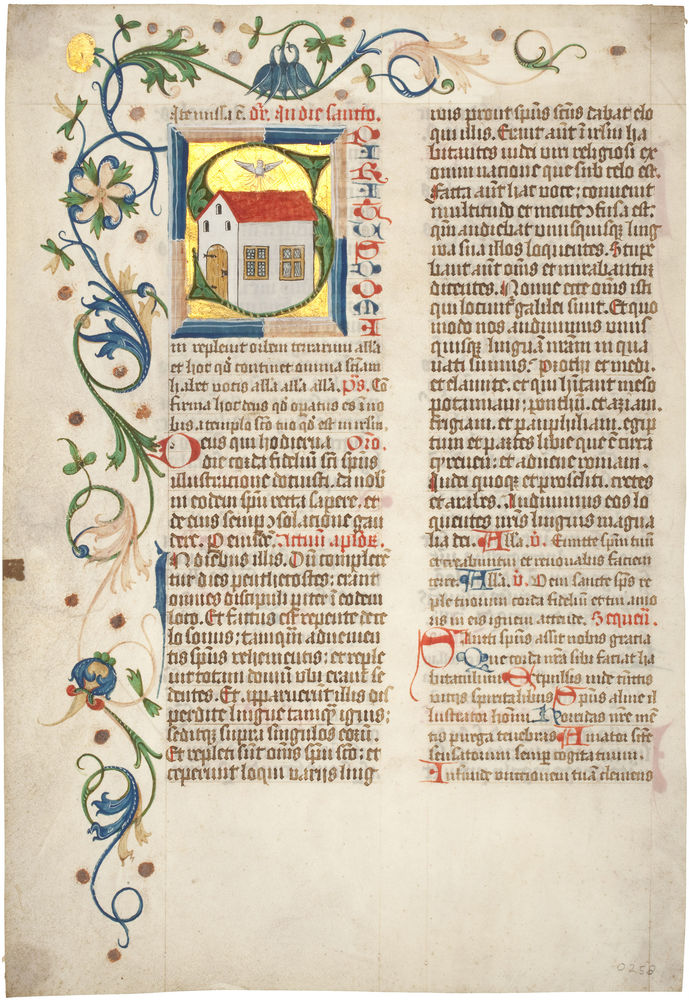 Ite missa ē. Dr̄. In die sancto.
S
PIRITUS DOMI
ni repleuit orbem terrarum alla
et hoc qd̄ continet omnia sciam̄
habet uocis alla alla alla. Ps̄. Cō
firma hoc deus qd̄ opatus es ī no
bis, a templo scō tuo qd̄ est in irlm̄
Deus qui hodierna Oro.
die corda fidelium scī spūs
illustratione docuisti, da nob
in eodem spū recta sapere, et
de eius semp ꝯsolatione gau
dere. P eiusdē. Actuū aplor̄.
In diebus illis. Cū complerē
tur dies penthecostes: erāt
omnes discipuli piter ī eodem
loco. Et factus est repente de ce
lo sonus: tamqm̄ aduenien
tis spūs uehementis: et reple
uit totam domū ubi erant se
dentes. Et apparuerūt illis dis
pertite lingue tamqm̄ ignis:
seditqz supra singulos eorū.
Et repleti sunt om̄s spū scō: et
ceperunt loqui uarijs ling
wis prout spūs scūs dabat elo
qui illis. Erāt aūt ī irlm̄ ha
bitantes iudei uiri religiosi ex
omni nacione que sub celo est.
Facta aūt hac uoce: conuenit
multitudo et mente ꝯfusa est:
qm̄ audiebat unusquisqz ling
wa sua illos loquentes. Stupe
bant aūt om̄s et mirabantur
dicentes. Nonne ecce om̄s isti
qui locunt᷑ galilei sunt. Et quo
modo nos audiuimus unus
quisqz linguā nr̄am in qua
nati sumus: Parthi et medi.
et elamite. et qui hītant meso
potamiam: ponthū. et aziam.
frigiam. et pamphiliam. egip
tum et partes libie que ē circa
cyrenen: et aduene romani.
Iudei quoqz et proseliti. cretes
et arabes. Audiuimus eos lo
quentes nr̄is linguis magna
lia dei. Alla. V̄. Emitte spm̄ tuū
et creabuntur et renouabis faciem
terre. Alla. V̄. Veni sancte spūs re
ple tuorum corda fidelium et tui amo
ris in eis ignem accende. Sequen̄.
Sancti spūs assit nobis gracia
Que corda nr̄a sibi faciat ha
bitaculum Expulsis inde cūctis
uiciis spiritalibus Spūs alme il
lustrator hoīm Horridas nr̄e mē
tis purga tenebras Amator scē
sensatorum semper cogitatuum.
Infunde unctionem tuā clemens
0258